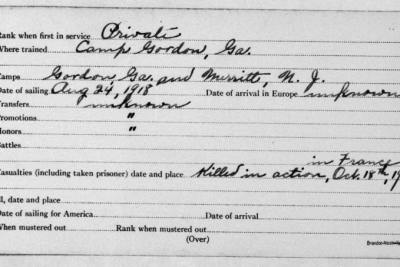 Rank when first in service Private
Where trained Camp Gordon, Ga.
Camps Gordon, Ga. and Merritt, N. J.
Date of sailing Aug 24, 1918 Date of arrival in Europe unknown
Transfers unknown
Promotions "
Honors "
Battles
in France
Casualties (including taken prisoner) date and place Killed in action, Oct. 18th, 19
Ill, date and place
Date of sailing for America Date of arrival
When mustered out Rank when mustered out
(Over)